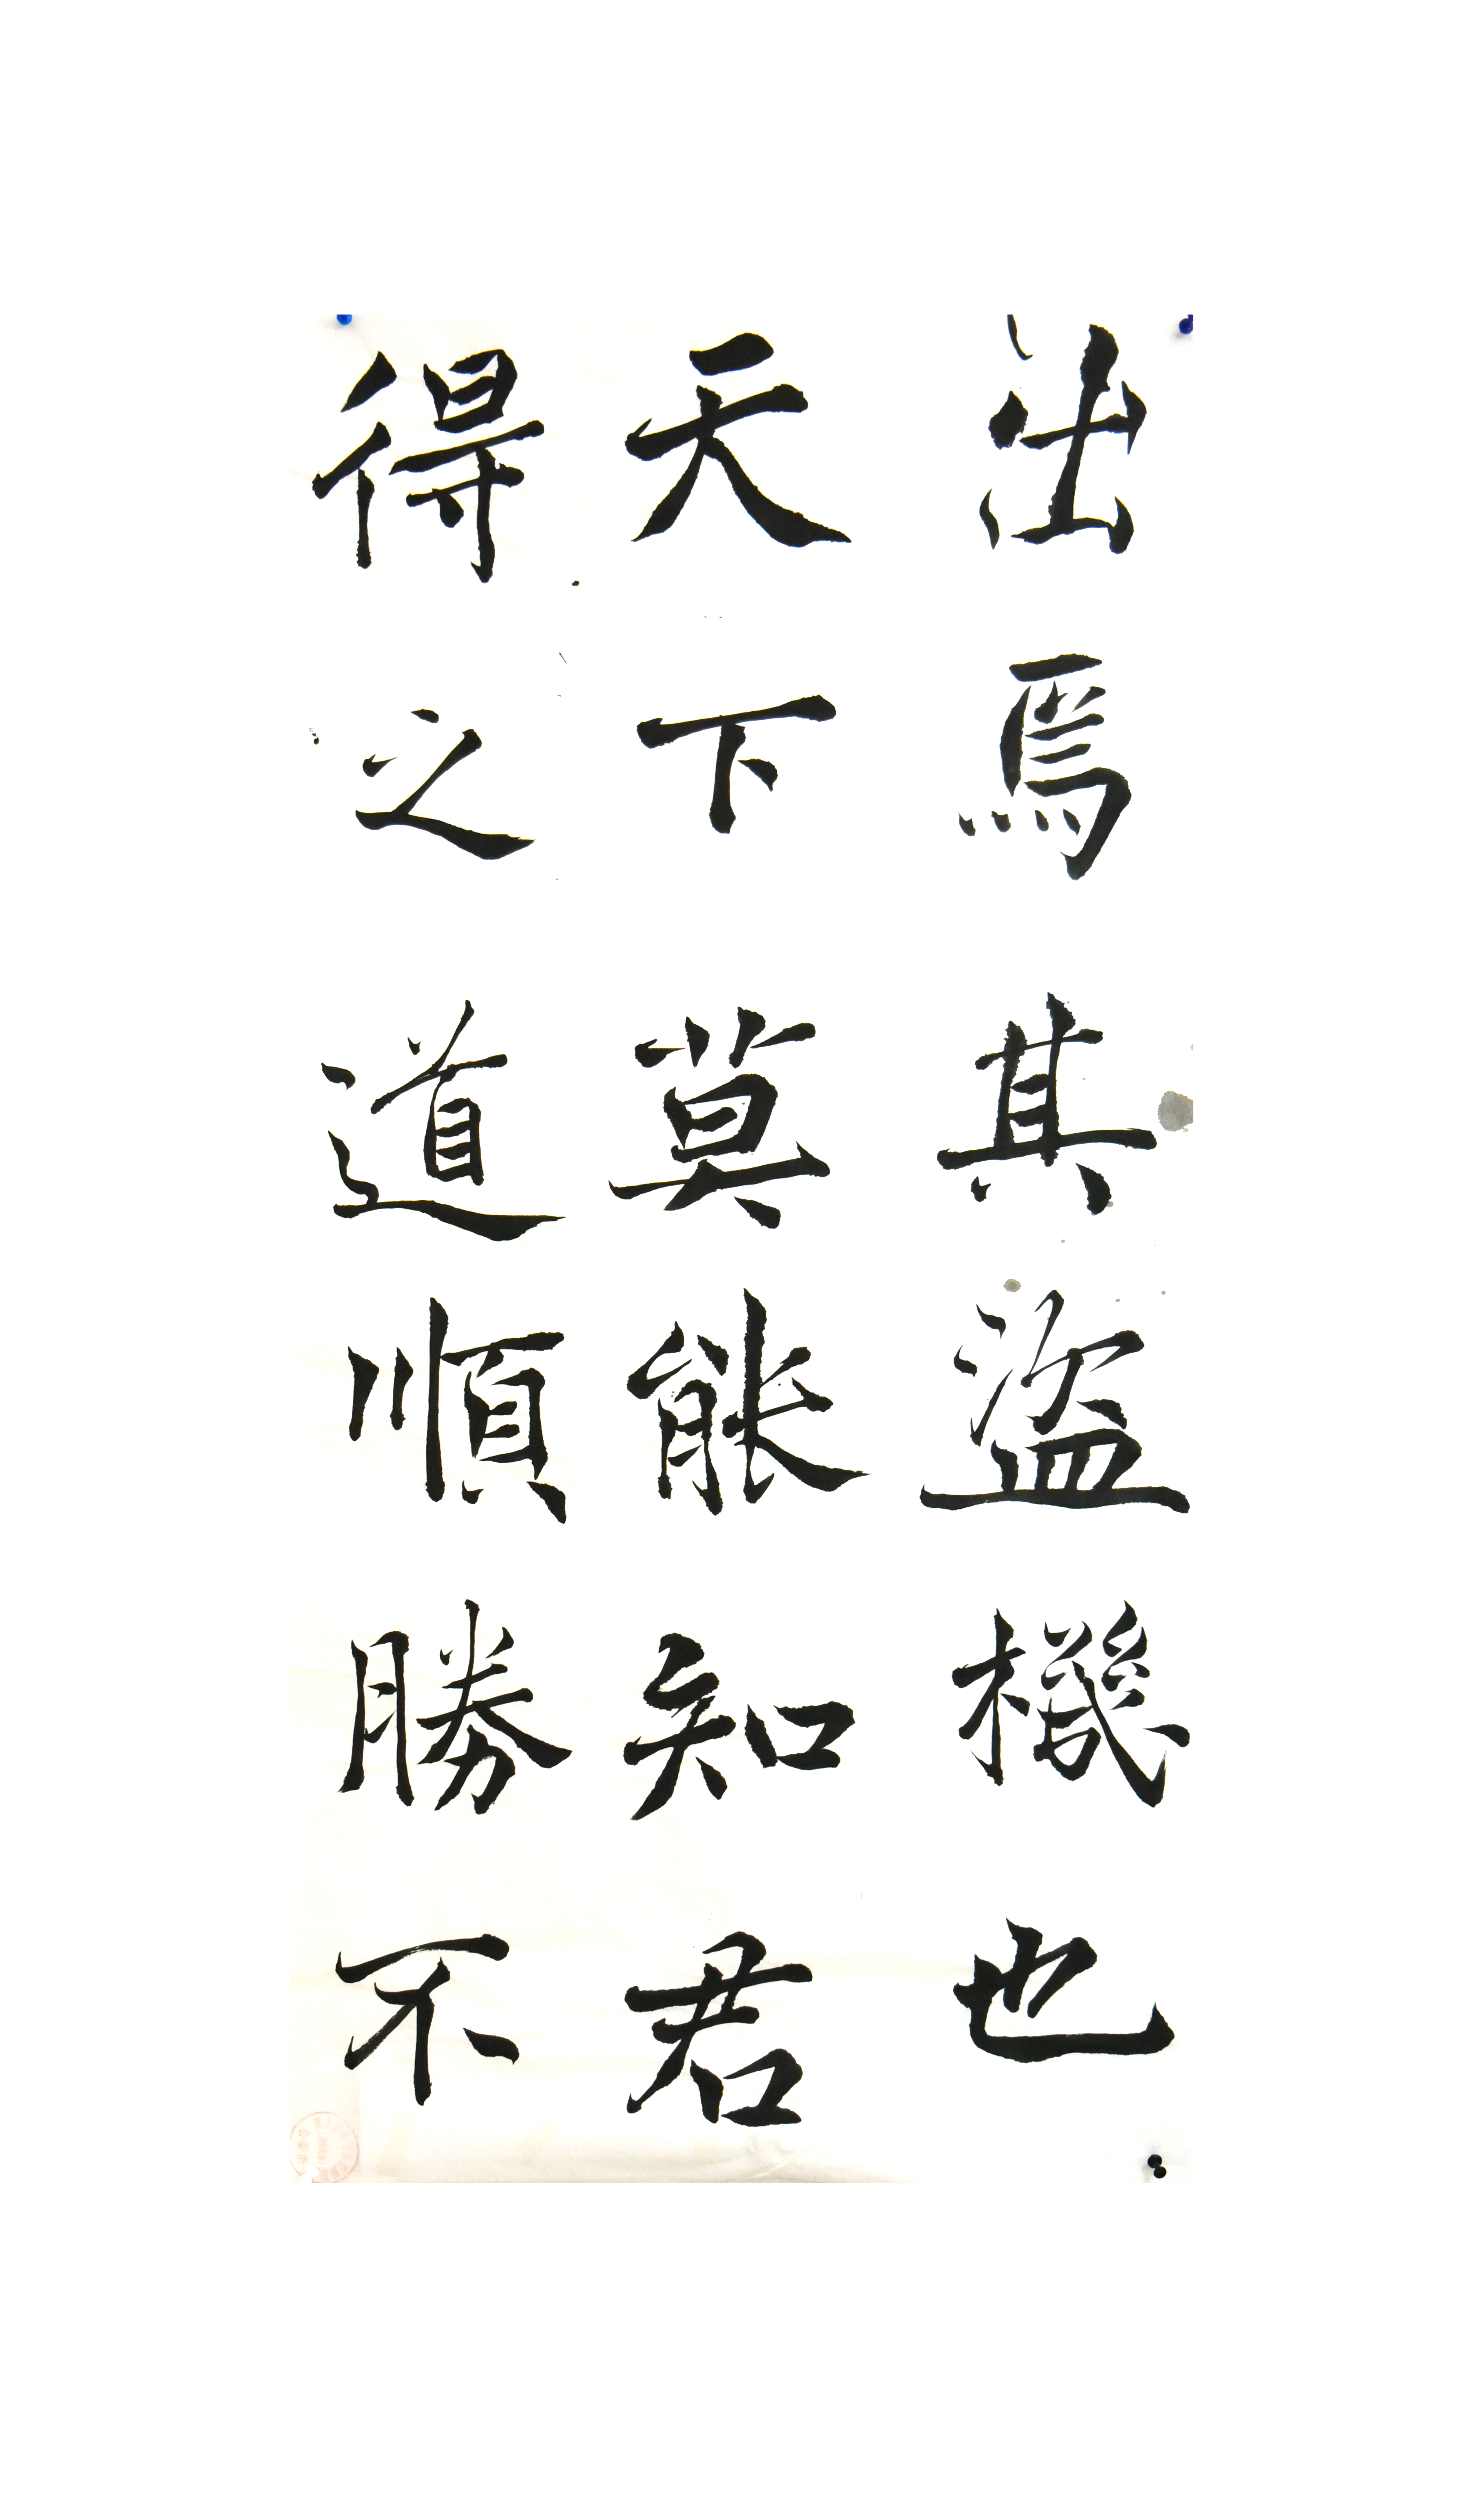 出焉其盜機也
天下莫能知君
得之道順勝不